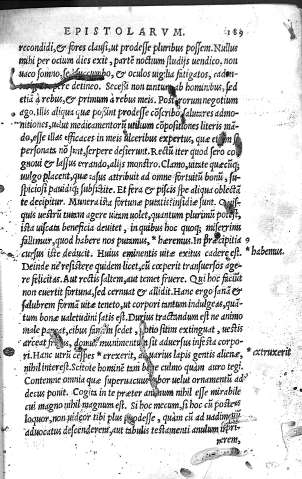 EPISTOLARVM. 189
recondidi, & fores clausi, ut prodesse pluribus possem. Nullus
mihi per ocium dies exit, partẽ noctium studijs uendico, non
uaco somno, & oculos uigilia fatigatos,
detineo. Secessi non tantũ ab hominibus, sed
etiã à rebus, & primum à rebus meis. Posterorum negotium
ago. Illis aliqua quæ possint prodesse cõscribo salutares admo-
nitiones, uelut medicamentorũ utilium cõpositiones literis mã-
do, esse illas efficaces in meis ulceribus expertus, quæ etiam si
personata nõ sunt, serpere desierunt. Rectũ iter quod sero co
gnoui & lassus errando, alijs monstro. Clamo, uitate quæcũq;
uulgo placent, quæ casus attribuit ad omne fortuitũ bonũ, su-
spiciosi pauidiq; subsistite. Et fera & piscis spe aliqua oblectã
te decipitur. Munera ista fortunæ putatis? insidiæ sunt. Quis-
quis uestrũ tutam agere uitam uolet, quantum plurimũ potest,
ista uiscata beneficia deuitet, in quibus hoc quoq; miserrimi
fallimur, quod habere nos putamus, * hæremus. In præcipitia
cursus iste deducit. Huius eminentis uitæ exitus cadere est.
* habemus.
Deinde ne resistere quidem licet, cũ cœperit transuersos age-
re felicitas. Aut rectis saltem, aut semel fruere. Qui hoc facit
non euertit fortuna, sed cernuat & allidit. Hanc ergo sanã &
salubrem formã uitæ teneto, ut corpori tantum indulgeas, quã-
tum bonæ ualetudini satis est. Durius tractandum est ne animo
male pareat, cibus famem sedet, potio sitim extinguat, uestis
arceat frigus, domus munimentũ sit aduersus infesta corpo-
ri. Hanc utrũ cespes * erexerit, an uarius lapis gentis alienæ,
* extruxerit
nihil interest. Scitote hominẽ tam bene culmo quàm auro tegi.
Contemne omnia quæ superuacuus labor uelut ornamentũ ac
decus ponit. Cogita in te præter animum nihil esse mirabile
cui magno nihil magnum est. Si hoc mecum, si hoc cũ posteris
loquor, non uideor tibi plus prodesse, quàm cũ ad uadimoniũ
aduocatus descenderem, aut tabulis testamenti anulum impri-
merem,